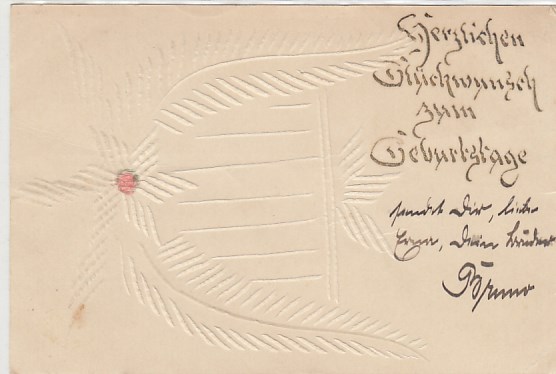 Herzlichen
Glückwunsch
zum
Geburtstage
sendet Dir, liebe
Erna, Dein Bruder
Bruno